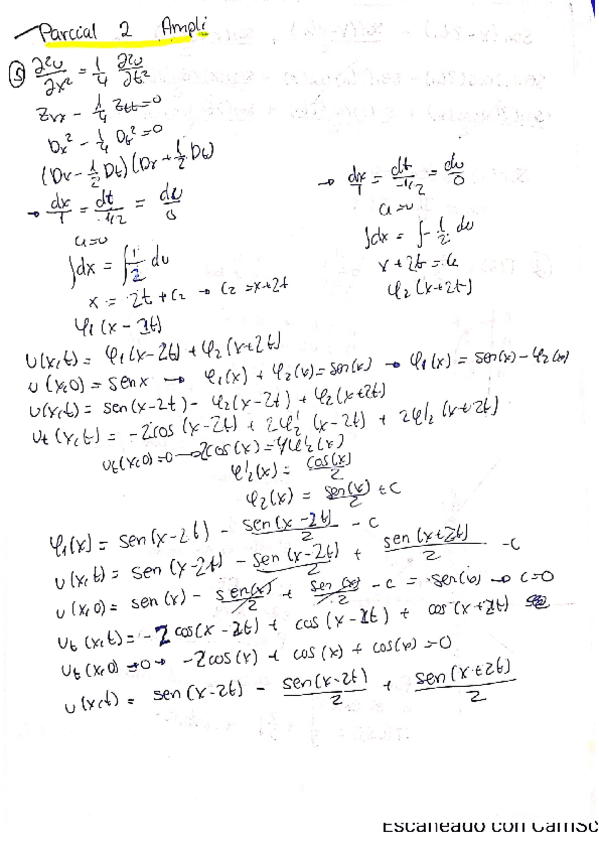 Parcial 2 Ampli
⑤ ∂²u/∂x² = 1/4 ∂²u/∂t²
Zxx - 1/4 Ztt = 0
Dx² - 1/4 Dt² = 0
(Dx - 1/2 Dt) (Dx + 1/2 Dt)
→ dx/1 = dt/-1/2 = du/0
u=u
∫dx = ∫1/2 du
x = 2t + C2 → C2 = x+2t
φ1 (x - 2t)
→ dx/1 = dt/-1/2 = du/0
u=u
∫dx = ∫-1/2 du
x + 2t = u
φ2 (x+2t)
u(x,t) = φ1(x-2t) + φ2(x+2t)
u(x,0) = sen x → φ1(x) + φ2(x) = sen(x) → φ1(x) = sen(x) - φ2(x)
u(x,t) = sen(x-2t) - φ2(x-2t) + φ2(x+2t)
ut (x,t) = -2cos(x-2t) + 2φ'2 (x-2t) + 2φ'2 (x+2t)
ut(x,0)=0 → 2cos(x) = 4φ'2(x)
φ'2(x) = cos(x)/2
φ2(x) = sen(x)/2 + C
φ1(x) = sen(x-2t) - sen(x-2t)/2 - C
u(x,t) = sen(x-2t) - sen(x-2t)/2 + sen(x+2t)/2 - C
u(x,0) = sen(x) - sen(x)/2 + sen(x)/2 - C = sen(x) → C=0
ut(x,t) = -2cos(x-2t) + cos(x-2t) + cos(x+2t)
ut(x,0) → 0 → -2cos(x) + cos(x) + cos(x) = 0
u(x,t) = sen(x-2t) - sen(x-2t)/2 + sen(x+2t)/2
Escaneado con CamSc